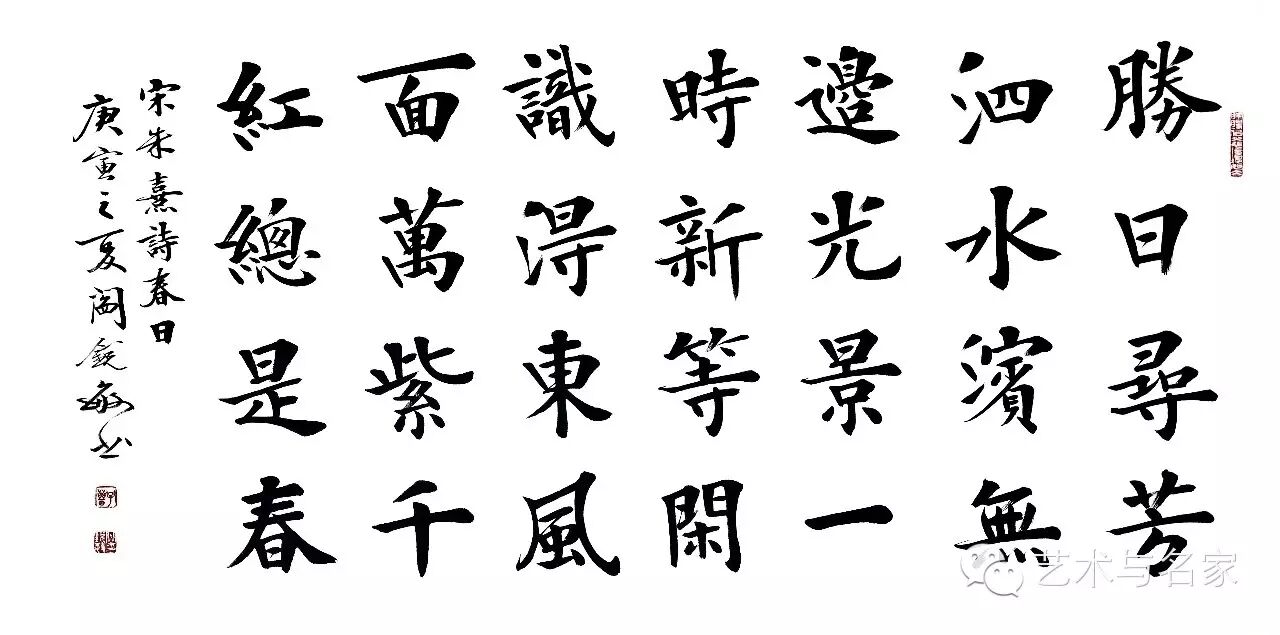 勝日尋芳
泗水濱無
邊光景一
時新等閑
識得東風
面萬紫千
紅總是春
宋朱熹詩春日
庚寅之夏書
艺术与名家